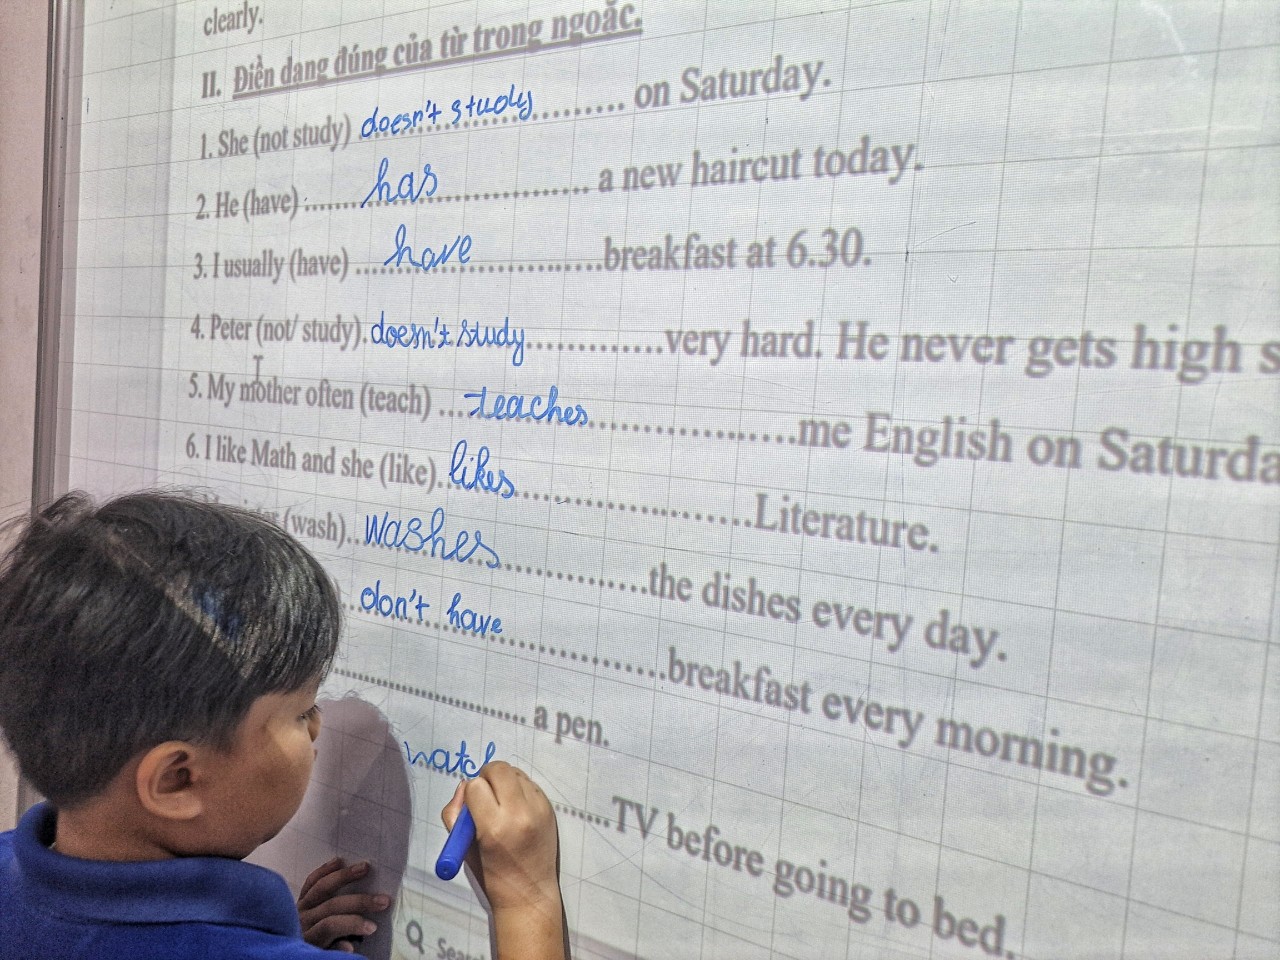 clearly.
II. Điền dạng đúng của từ trong ngoặc.
1. She (not study) doesn't study ........ on Saturday.
2. He (have) ....... has ............... a new haircut today.
3. I usually (have) ... have ...............breakfast at 6.30.
4. Peter (not/ study). doesn't study..............very hard. He never gets high s
5. My mother often (teach) ....teaches....................me English on Saturda
6. I like Math and she (like). likes......................Literature.
(wash).. washes ................the dishes every day.
... don't have ................breakfast every morning.
........................... a pen.
watch ......TV before going to bed.